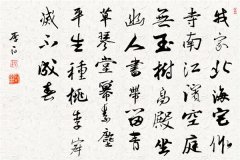 我家北海宅作
寺南江濱空庭
無玉樹高殿坐
幽人書帶留青
草琴堂冪素塵
平生種桃李寂
滅不成春
李白